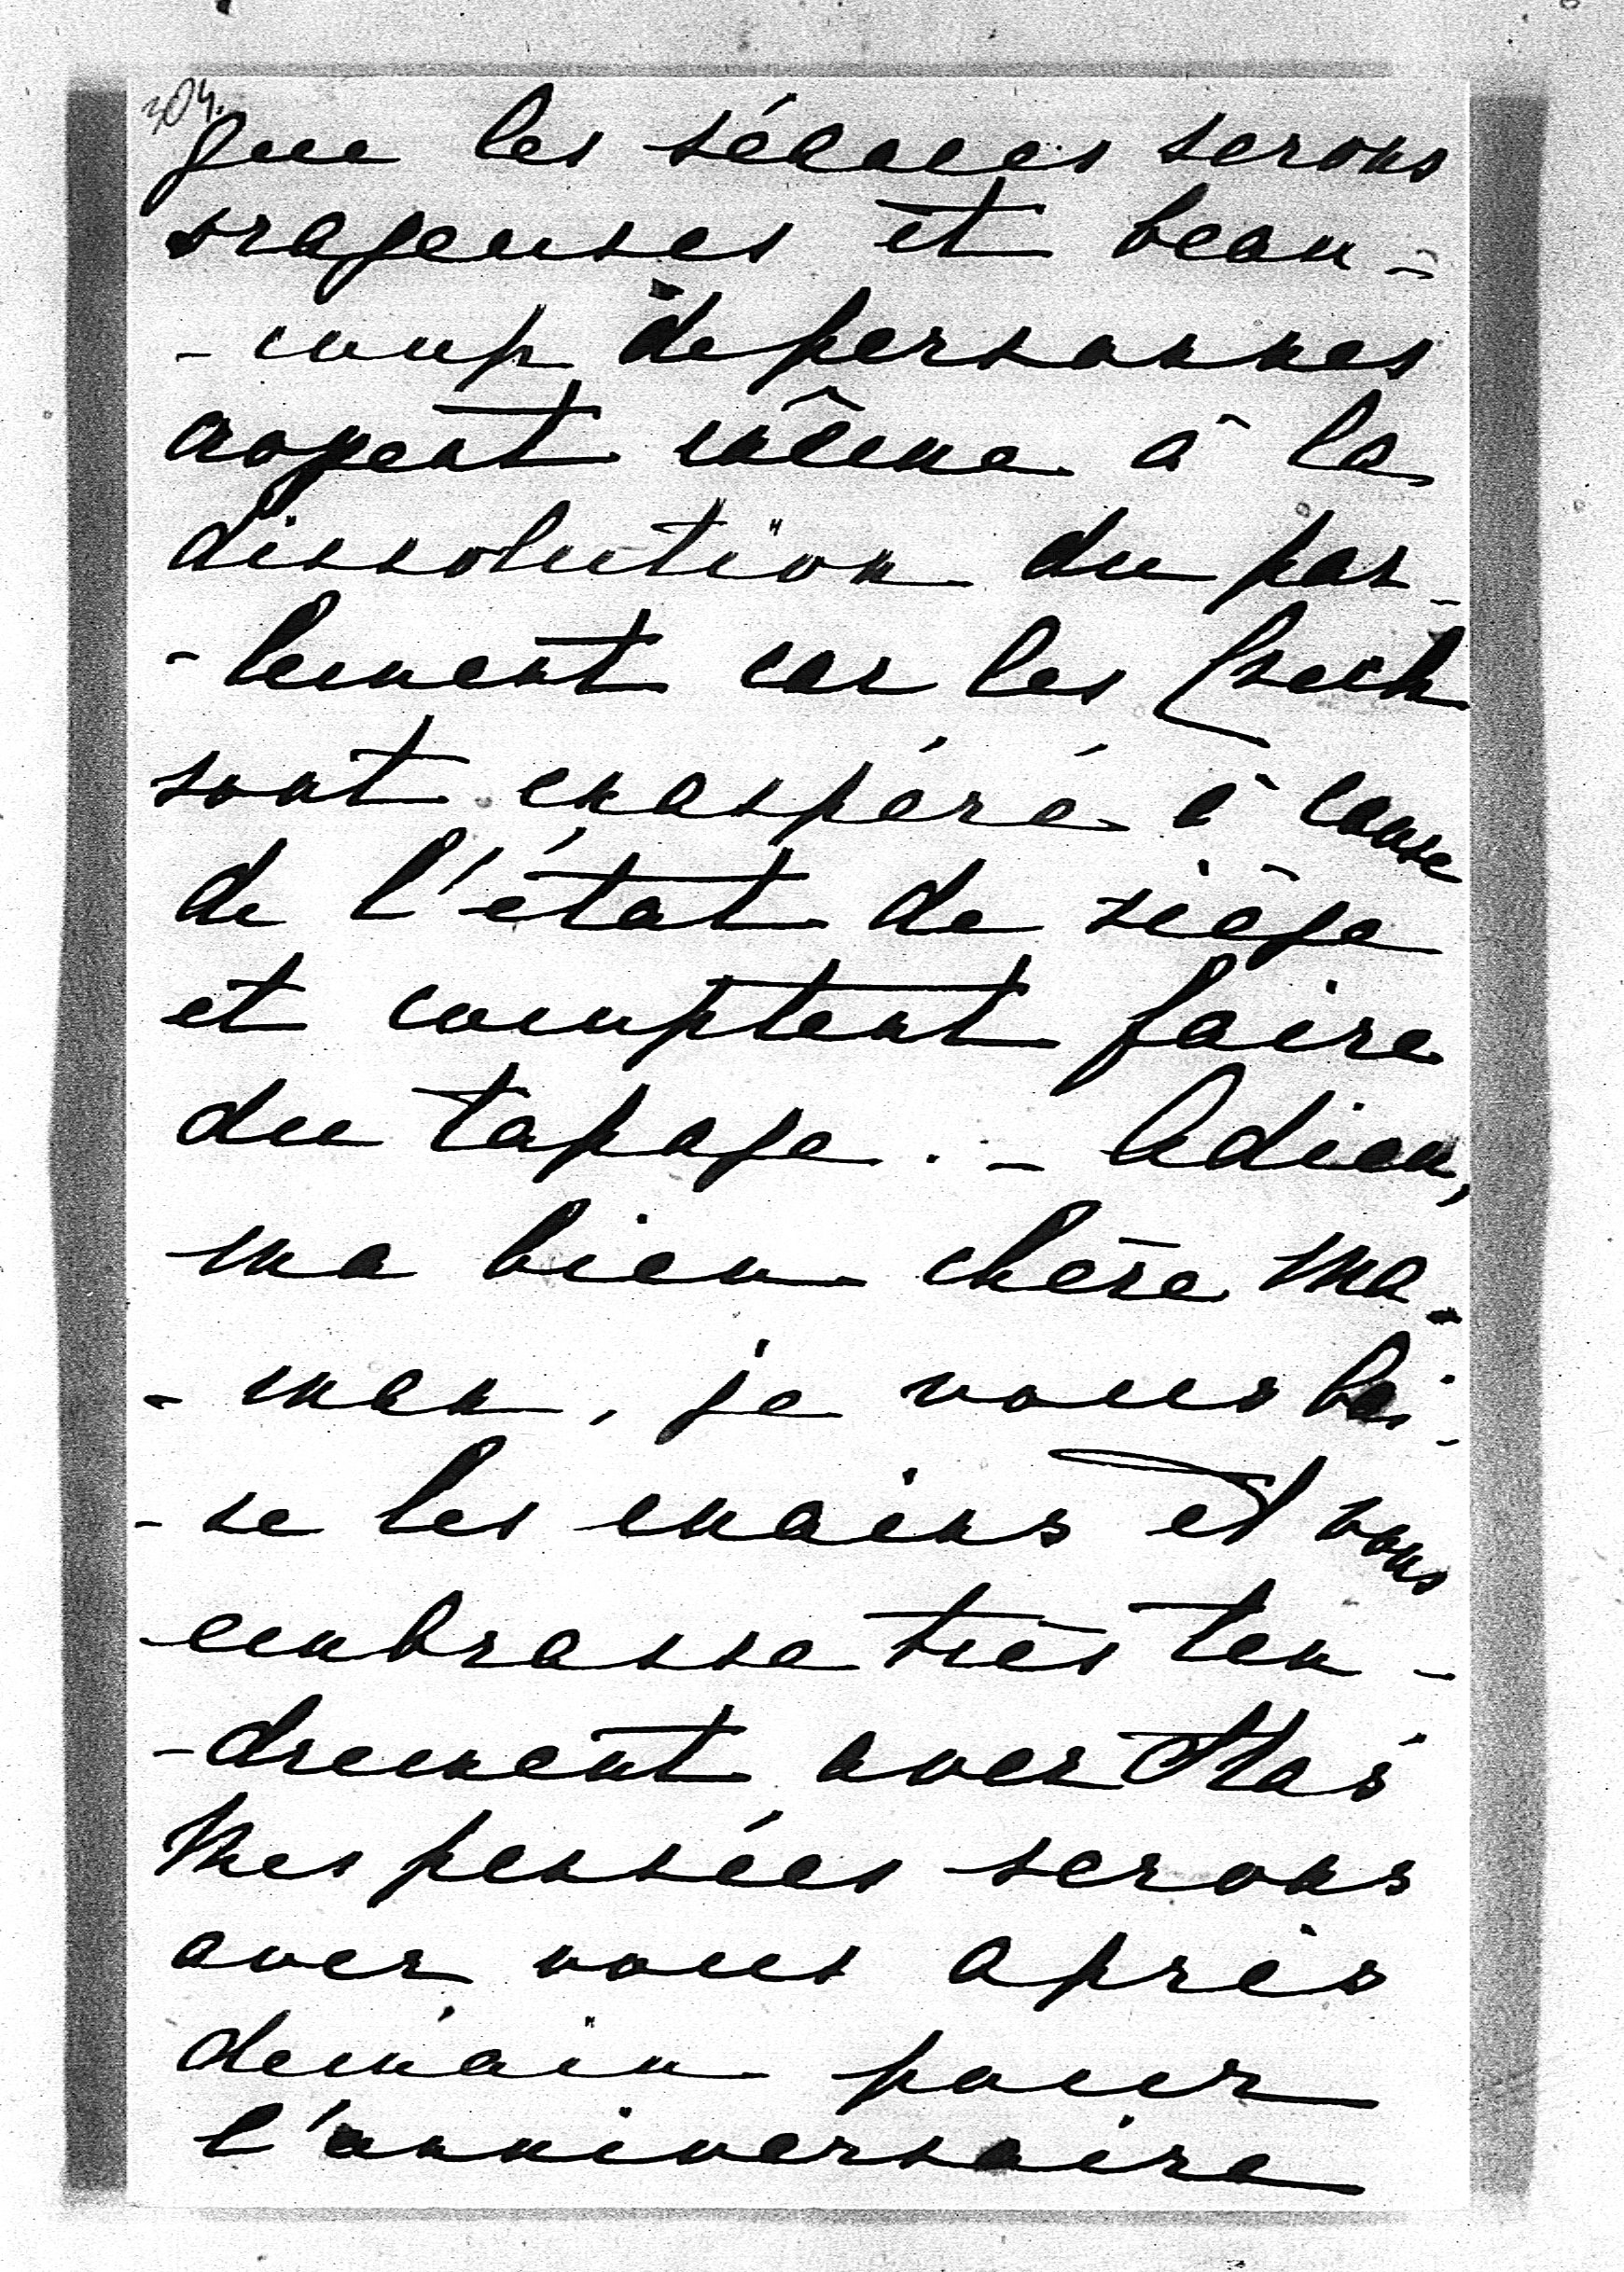 304.
que les séances serons
orageuses et beau-
-coup de personnes
croyent même à la
dissolution du par-
-lement car les Czech
sont exaspéré à cause
de l'état de siège
et comptent faire
du tapage. - Adieu,
ma bien chère ma-
-man, je vous bai-
-se les mains et vous
embrasse très ten-
-drement avec
Mes pensées serons
avec vous après
demain pour
l'anniversaire